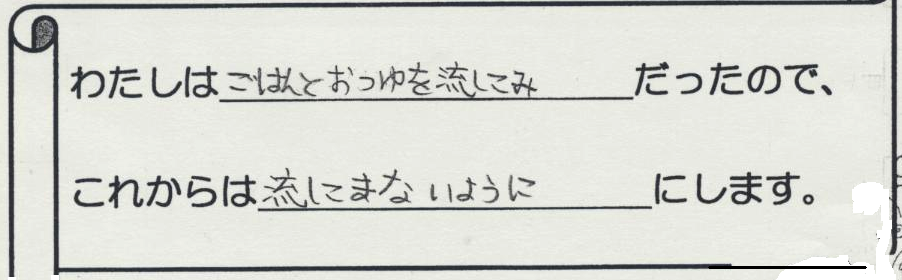 わたしはごはんとおつゆを流しこみだったので、
これからは流しこまないようににします。